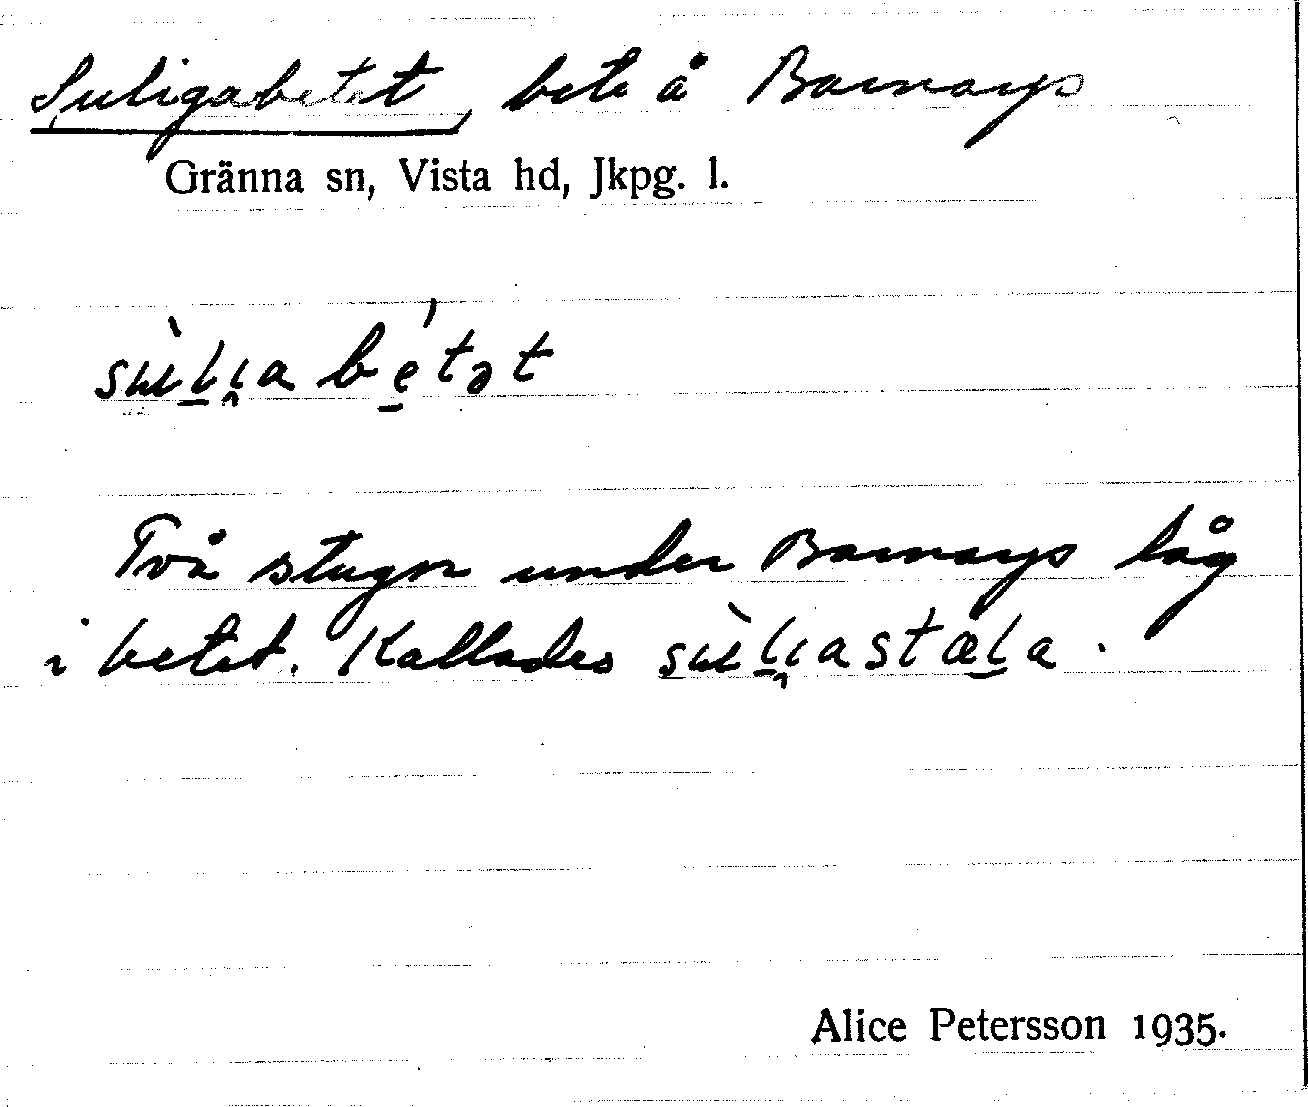 Suligabetet, bete å Barnarps
Gränna sn, Vista hd, Jkpg. l.
sùli̯a bétət
Två stugor under Barnarps låg
i betet. Kallades sùli̯astæla.
Alice Petersson 1935.